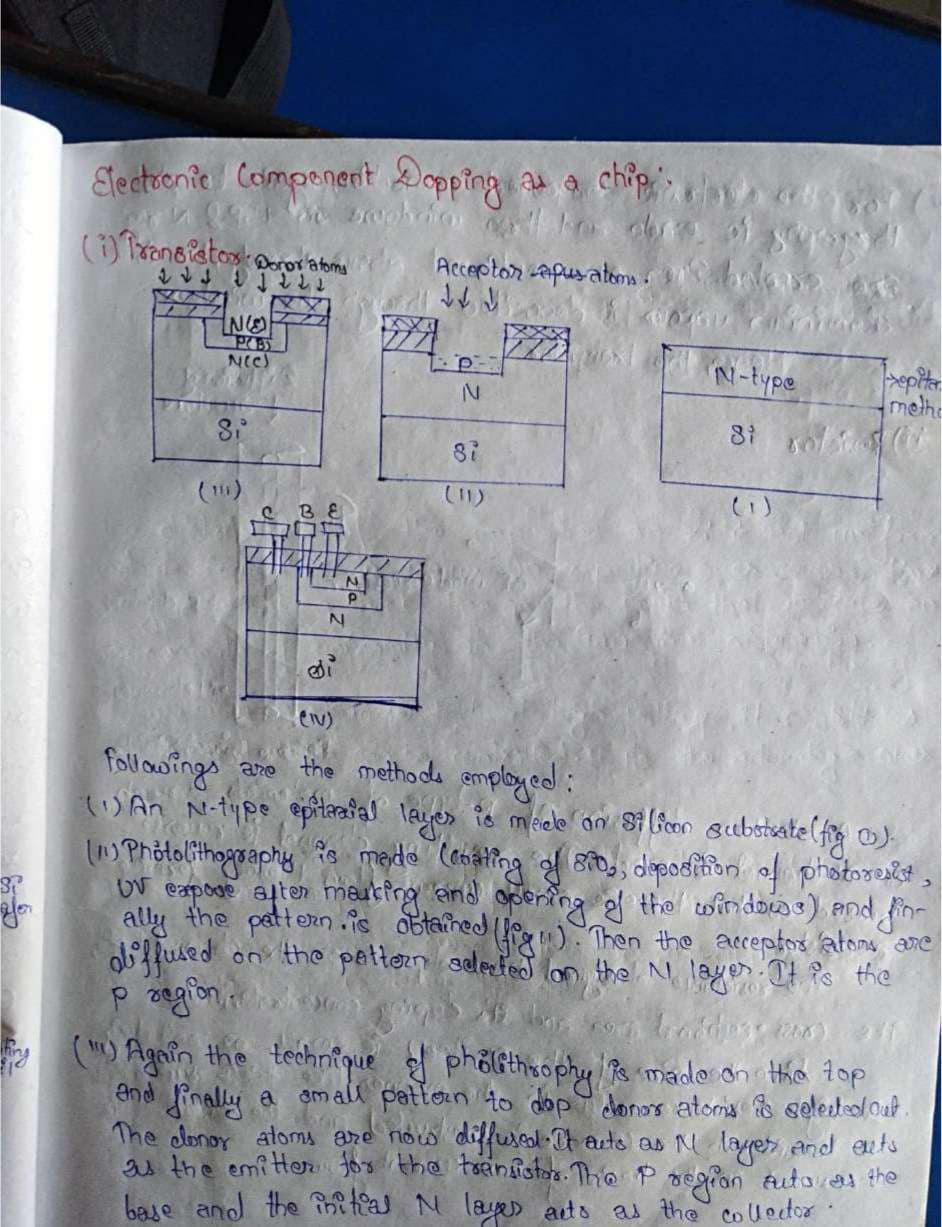 Electronic Component Dopping as a chip:
(i) Transistor. Donor atoms
Acceptor atoms.
N(E)
P(B)
N(C)
Si
(III)
P
N
Si
(II)
N-type
Si
(I)
C B E
N
P
N
Si
(IV)
followings are the methods employed:
(i) An N-type epitaxial layer is made on Silicon substrate (fig (1)).
(ii) Photolithography is made (coating of SiO2, deposition of photoresist,
UV expose after masking and opening of the windows) and fin-
ally the pattern is obtained (fig 11). Then the acceptor atoms are
diffused on the pattern selected on the N layer. It is the
P region.
(iii) Again the technique of philithrophy is made on the top
and finally a small pattern to dop donor atoms is selected out.
The donor atoms are now diffused. It acts as N layer and acts
as the emitter for the transistor. The P region acts as the
base and the initial N layer acts as the collector.